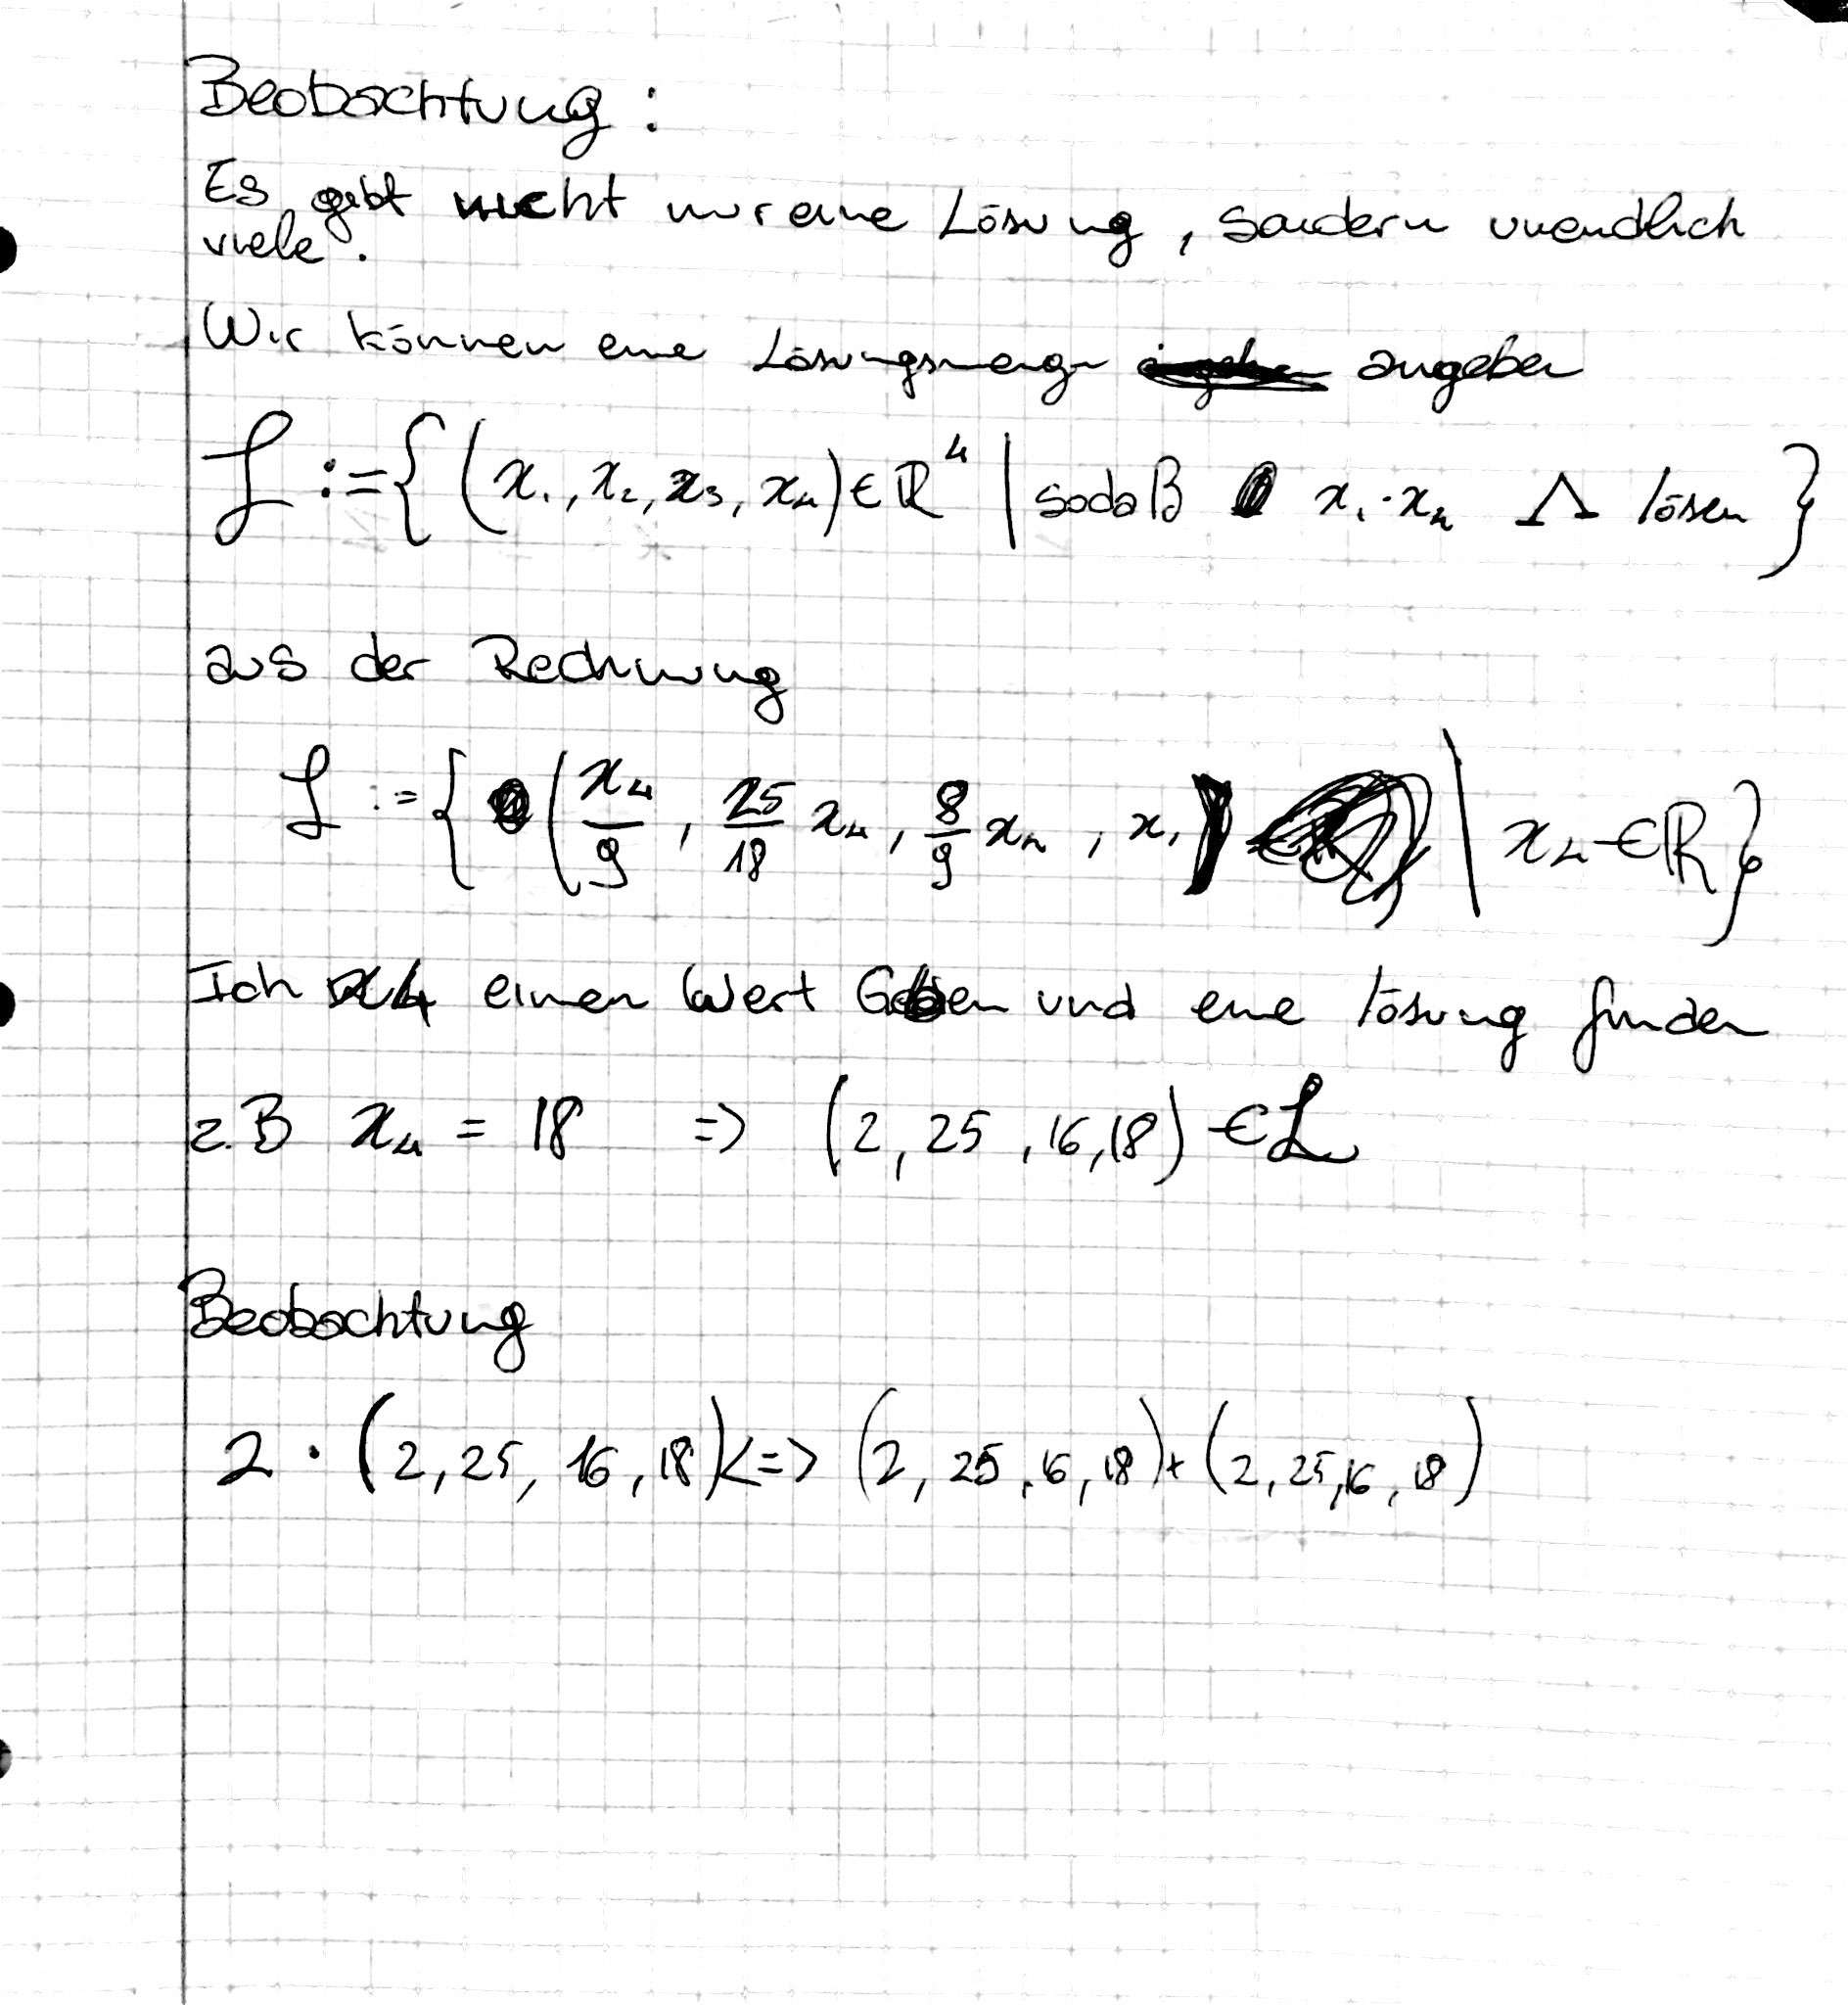 Beobachtung :
Es gibt nicht nur eine Lösung , sondern unendlich
viele .
Wir können eine Lösungsmenge angeben
ℒ := { (x₁, x₂, x₃, x₄) ∈ ℝ⁴ | sodaß x₁ · x₄ Λ lösen }
aus der Rechnung
ℒ := { ( x₄/9 , 25/18 x₄ , 8/9 x₄ , x₁ ) | x₄ ∈ ℝ }
Ich x4 einen Wert Geben und eine lösung finden
z.B x₄ = 18 => (2, 25 , 16, 18) ∈ ℒ
Beobachtung
2 · (2, 25, 16, 18) <=> (2, 25, 16, 18) + (2, 25, 16, 18)